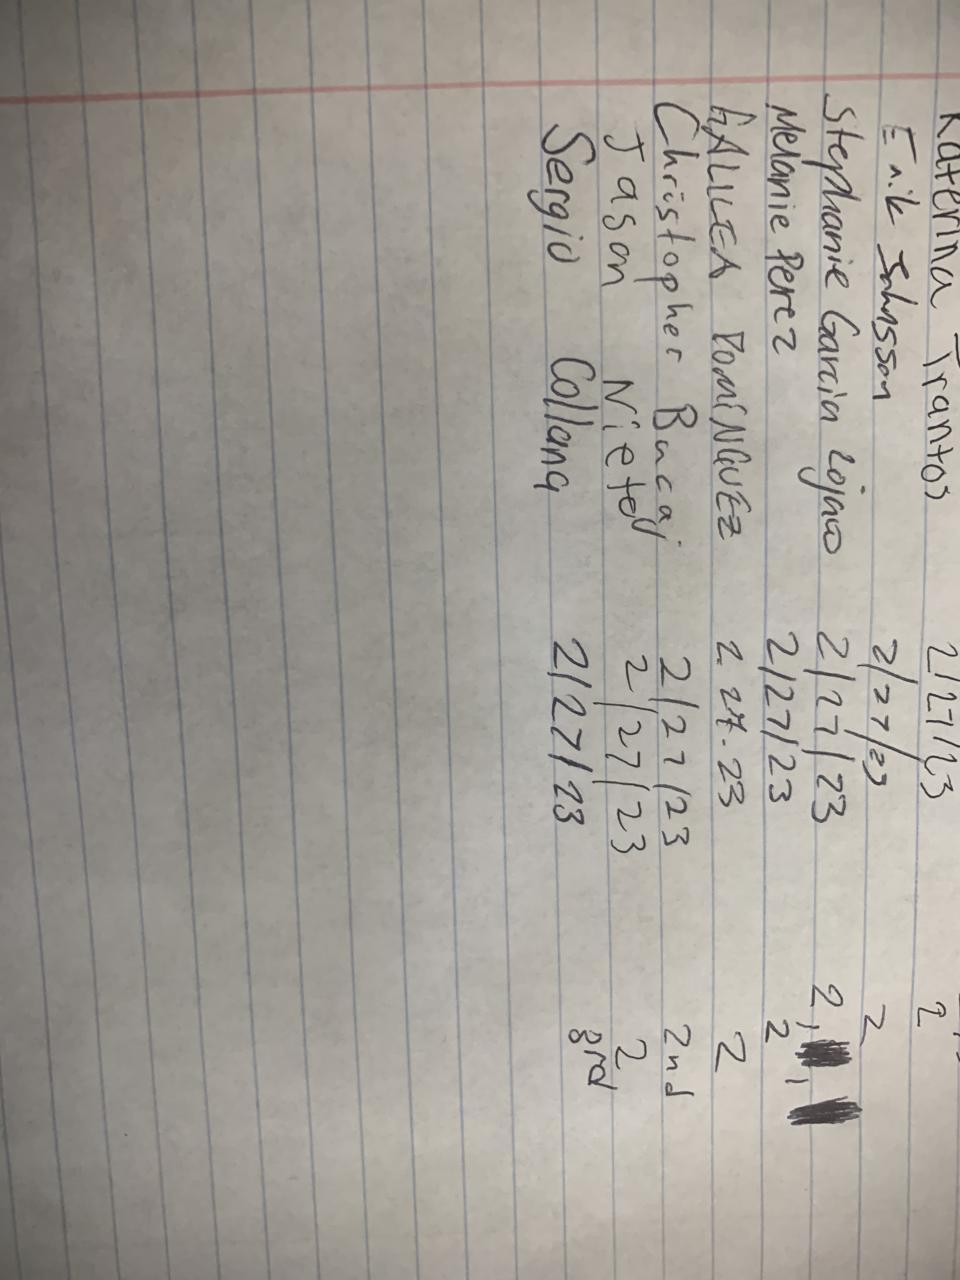 Katerina Trantos 2/27/23 2
Erik Johnsson 2/27/23 2
Stephanie Garcia Lojano 2/27/23 2,
Melanie Perez 2/27/23 2
GALILEA DOMINGUEZ 2.27.23 2
Christopher Bacaj 2/27/23 2nd
Jason Nieto 2/27/23 2
Sergio Collana 2/27/23 3rd